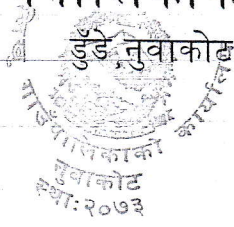 डुँडे,नुवाकोट
गाउँपालिकाको कार्यालय
नुवाकोट
स्था:२०७३